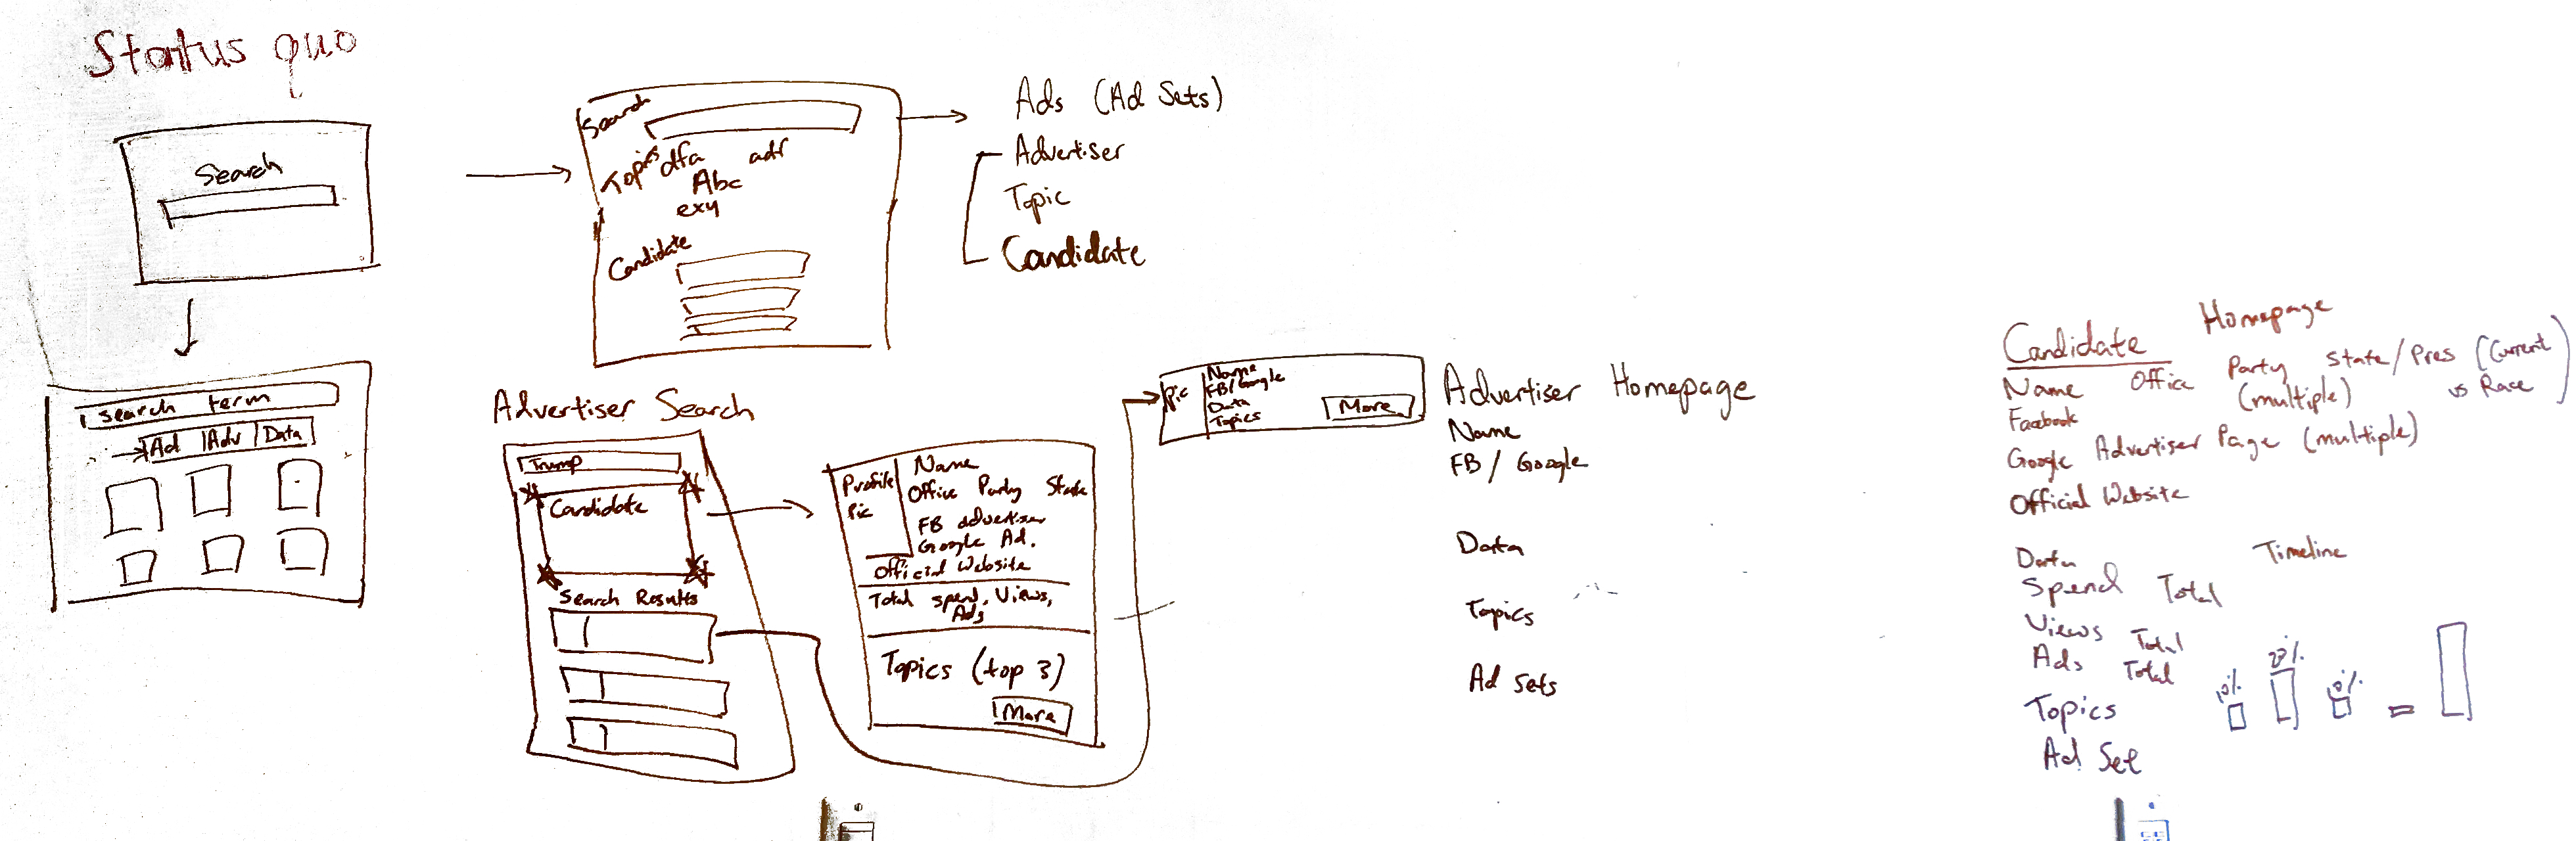 Status quo
Search
search term
Ad | Adv | Data
Search
Topics dfa adf
Abc
exy
Candidate
Ads (Ad Sets)
Advertiser
Topic
Candidate
Advertiser Search
Trump
Candidate
Search Results
Profile Pic
Name
Office Party State
FB advertiser
Google Ad.
Official Website
Total spend, Views, Ads
Topics (top 3)
More
Pic
Name
FB/Google
Data
Topics
More
Advertiser Homepage
Name
FB / Google
Data
Topics
Ad Sets
Candidate Homepage
Name Office Party (multiple) State/Pres (Current vs Race)
Facebook
Google Advertiser Page (multiple)
Official Website
Data Timeline
Spend Total
Views Total
Ads Total
Topics
Ad Set